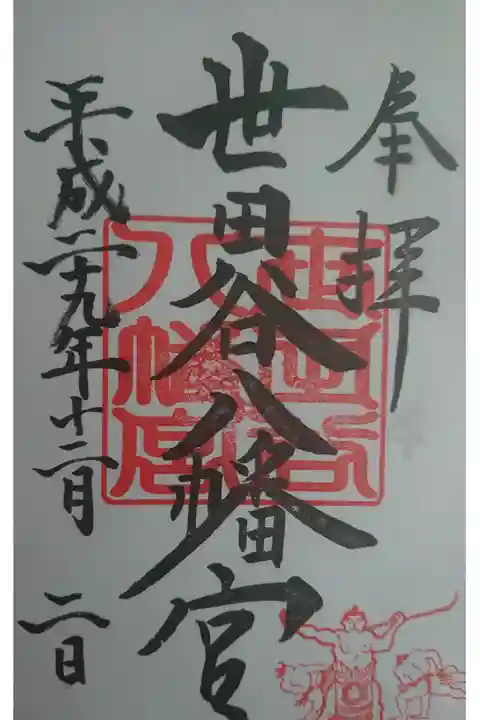 奉拝
世田谷八幡宮
世田谷
八幡宮
平成二十九年十二月二日